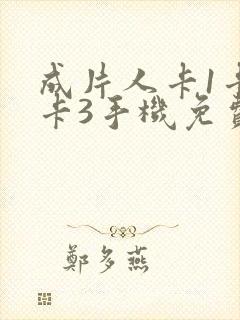 成片人卡1卡
卡3手機免費
鄭多燕